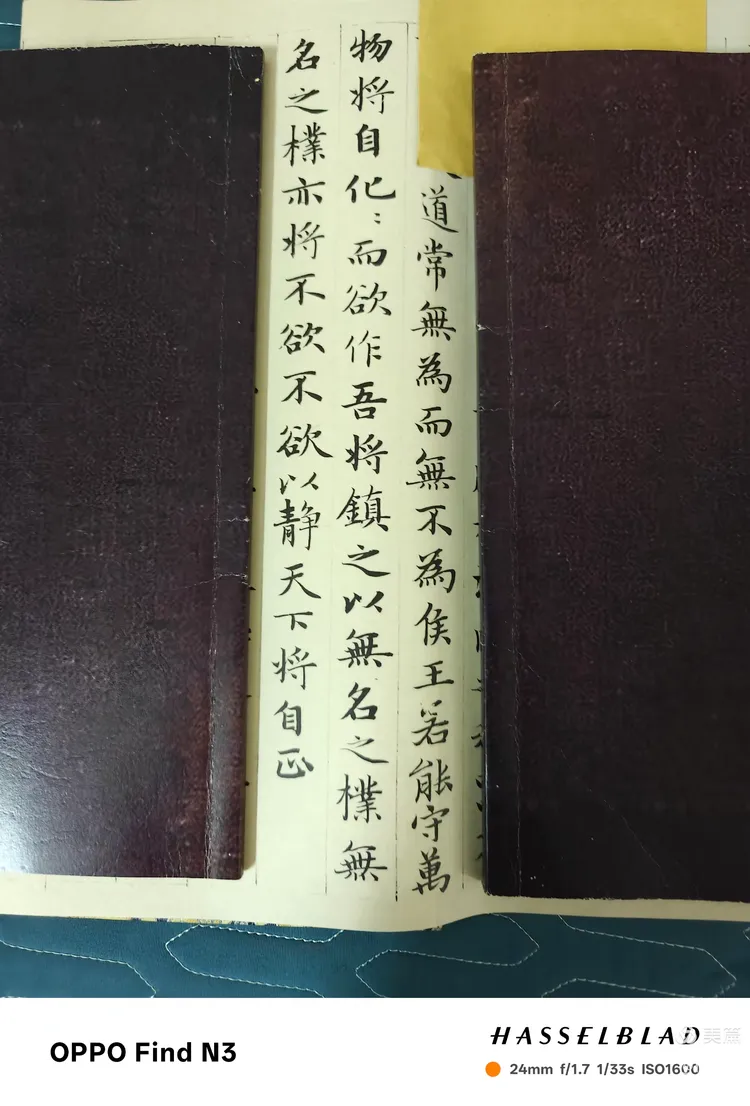 道常無為而無不為侯王若能守萬
物将自化：而欲作吾将鎮之以無名之樸無
名之樸亦将不欲不欲以静天下将自正
OPPO Find N3
HASSELBLAD
24mm f/1.7 1/33s ISO1600
美篇